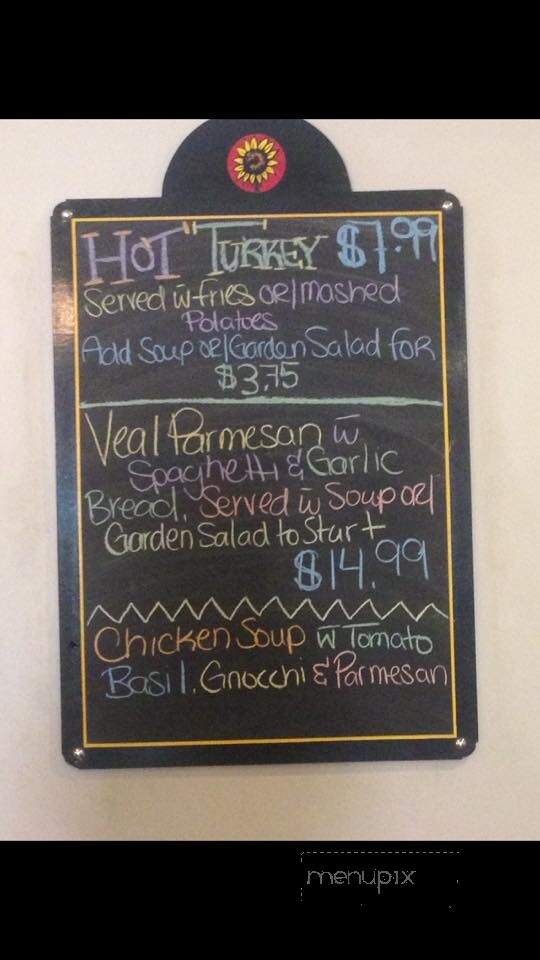 HOT "TURKEY" $7.99
Served w̄ fries or/mashed
Potatoes
Add Soup or/Garden Salad for
$3.75
Veal Parmesan w̄
Spaghetti & Garlic
Bread. Served w̄ Soup or/
Garden Salad to Start
$14.99
Chicken Soup w̄ Tomato
Basil. Gnocchi & Parmesan
menupix